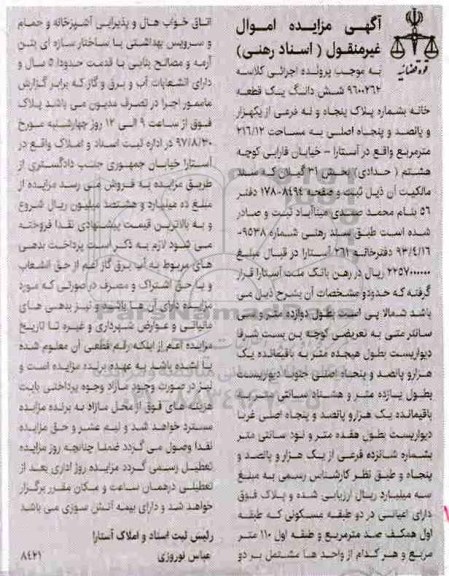 آگهی مزایده اموال
غیرمنقول ( اسناد رهنی)
قوه قضائیه
به موجب پرونده اجرائی کلاسه
۹۶۰۰۲۶۲ شش دانگ یک قطعه
خانه بشماره پلاک پنجاه و نه فرعی از یکهزار
و پانصد و پنجاه اصلی به مساحت ۲۱۶/۱۲
مترمربع واقع در آستارا – خیابان فارابی کوچه
هشتم ( حدادی) بخش ۳۱ گیلان که سند
مالکیت آن ذیل ثبت و صفحه ۱۷۸۰۸۴۹۴ دفتر
۵۶ بنام محمد سعدی میناآباد ثبت و صادر
شده است طبق سند رهنی شماره ۰۹۵۳۸
۹۳/۴/۱۶ دفترخانه ۲۱ آستارا در قبال مبلغ
۲۲۵۷۰۰۰۰۰۰ ریال در رهن بانک ملت آستارا قرار
گرفته که حدود و مشخصات آن بشرح ذیل می
باشد شمالا پی است بطول دوازده متر و سی
سانتر متی به تعریضی کوچه بن بست شرقا
دیواریست بطول هیجده متر به باقیمانده یک
هزار و پانصد و پنجاه اصلی جنوبا دیواریست
بطول یازده متر و هشتاد سانتی متر به
باقیمانده یک هزار و پانصد و پنجاه اصلی غربا
دیواریست بطول هفده متر و نود سانتی متر
بشماره شانزده فرعی از یک هزار و پانصد و
پنجاه و طبق نظر کارشناس رسمی به مبلغ
سه میلیارد ریال ارزیابی شده و پلاک فوق
دارای اعیانی در دو طبقه مسکونی که طبقه
اول همکف صد مترمربع و طبقه اول ۱۱۰ متر
مربع و هر کدام از واحد ها مشتمل بر دو
اتاق خواب هال و پذیرایی آشپزخانه و حمام
و سرویس بهداشتی با ساختار سازه ای بتن
آرمه و مصالح بنایی با قدمت حدودا ۵ سال و
دارای انشعابات آب و برق و گاز که برابر گزارش
مامور اجرا در تصرف مدیون می باشد پلاک
فوق از ساعت ۹ الی ۱۲ روز چهارشنبه مورخ
۹۷/۸/۳۰ در اداره ثبت اسناد و املاک واقع در
آستارا خیابان جمهوری جنب دادگستری از
طریق مزایده به فروش می رسد مزایده از
مبلغ ده میلیارد و هشتصد میلیون ریال شروع
و به بالاترین قیمت پیشنهادی نقدا فروخته
می شود لازم به ذکر است پرداخت بدهی
های مربوط به آب برق گاز اعم از حق انشعاب
و یا حق اشتراک و مصرف در صورتی که مورد
مزایده دارای آن ها باشد و نیز بدهی های
مالیاتی و عوارض شهرداری و غیره تا تاریخ
مزایده اعم از اینکه رقم قطعی آن معلوم شده
یا نشده باشد به عهده برنده مزایده است و
نیز در صورت وجود مازاد وجوه پرداختی بابت
هزینه های فوق از محل مازاد به برنده مزایده
مسترد خواهد شد و نیم عشر و حق مزایده
نقدا وصول می گردد ضمنا چنانچه روز مزایده
تعطیل رسمی گردد مزایده روز اداری بعد از
تعطیلی درهمان ساعت و مکان مقرر برگزار
خواهد شد و دارای بیمه آتش سوزی می باشد
رئیس ثبت اسناد و املاک آستارا
عباس نوروزی
۸۴۲۱